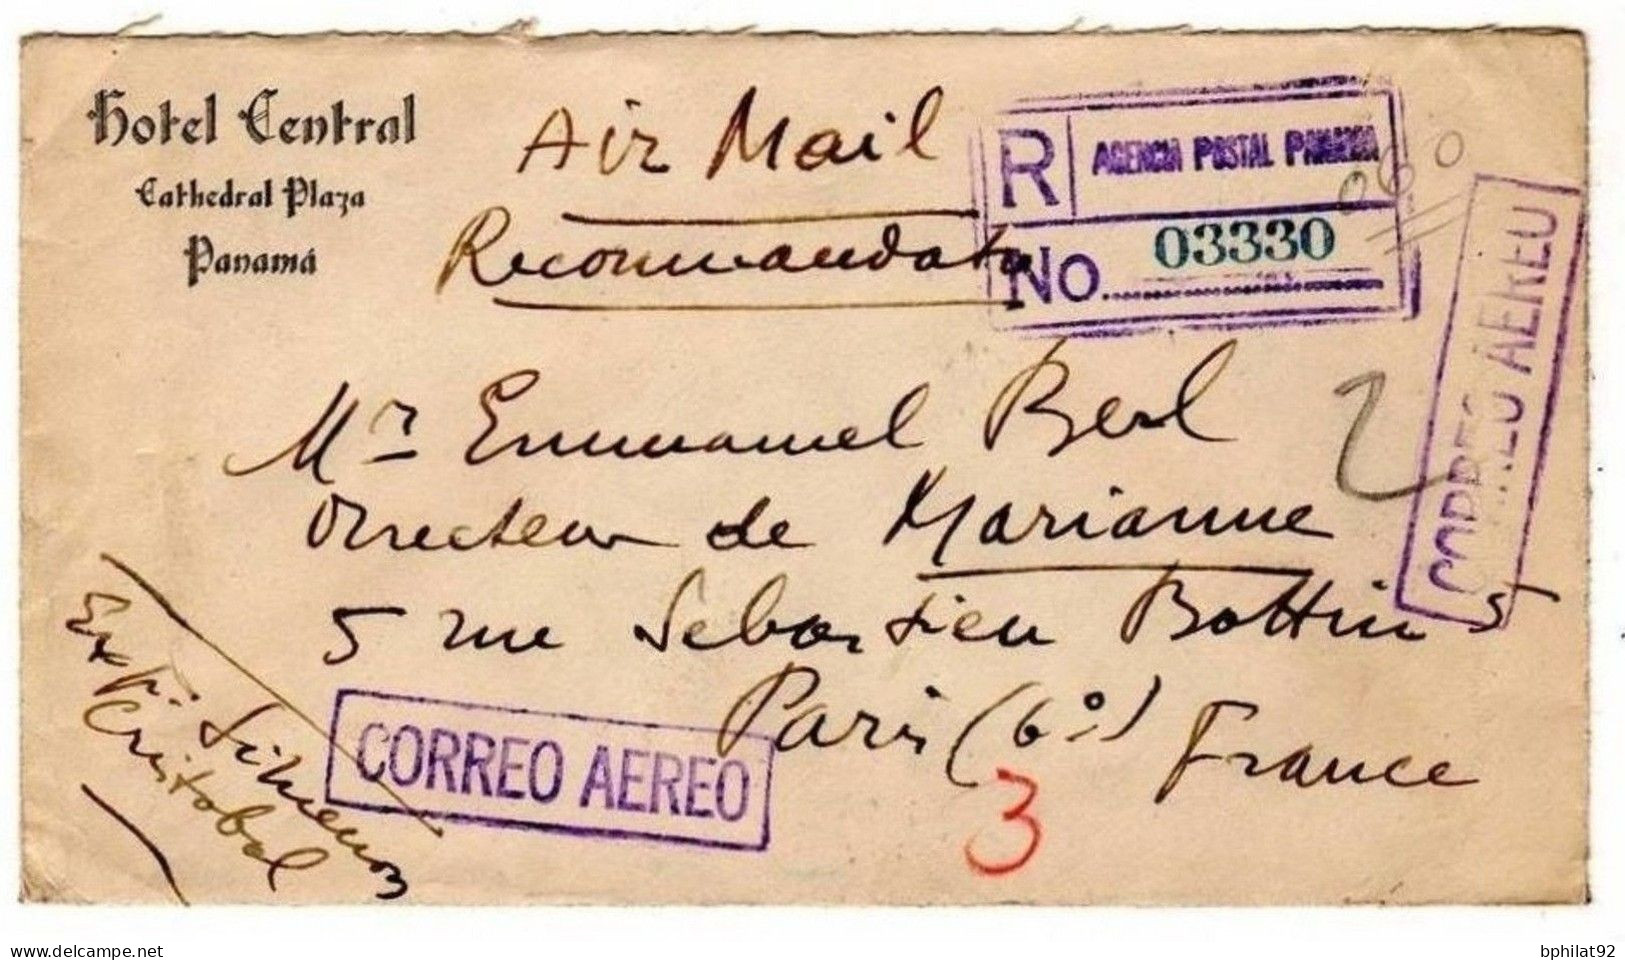 Hotel Central
Cathedral Plaza
Panamá
Air Mail
Recommandato
R
AGENCIA POSTAL PANAMA
No. 03330
060
CORREO AEREO
2
Mr Emmanuel Berl
Directeur de Marianne
5 rue Sebastien Bottin 5
Paris (6º)
France
3
CORREO AEREO
Exp: Simenon
Cristobal
delcampe.net
bphilat92